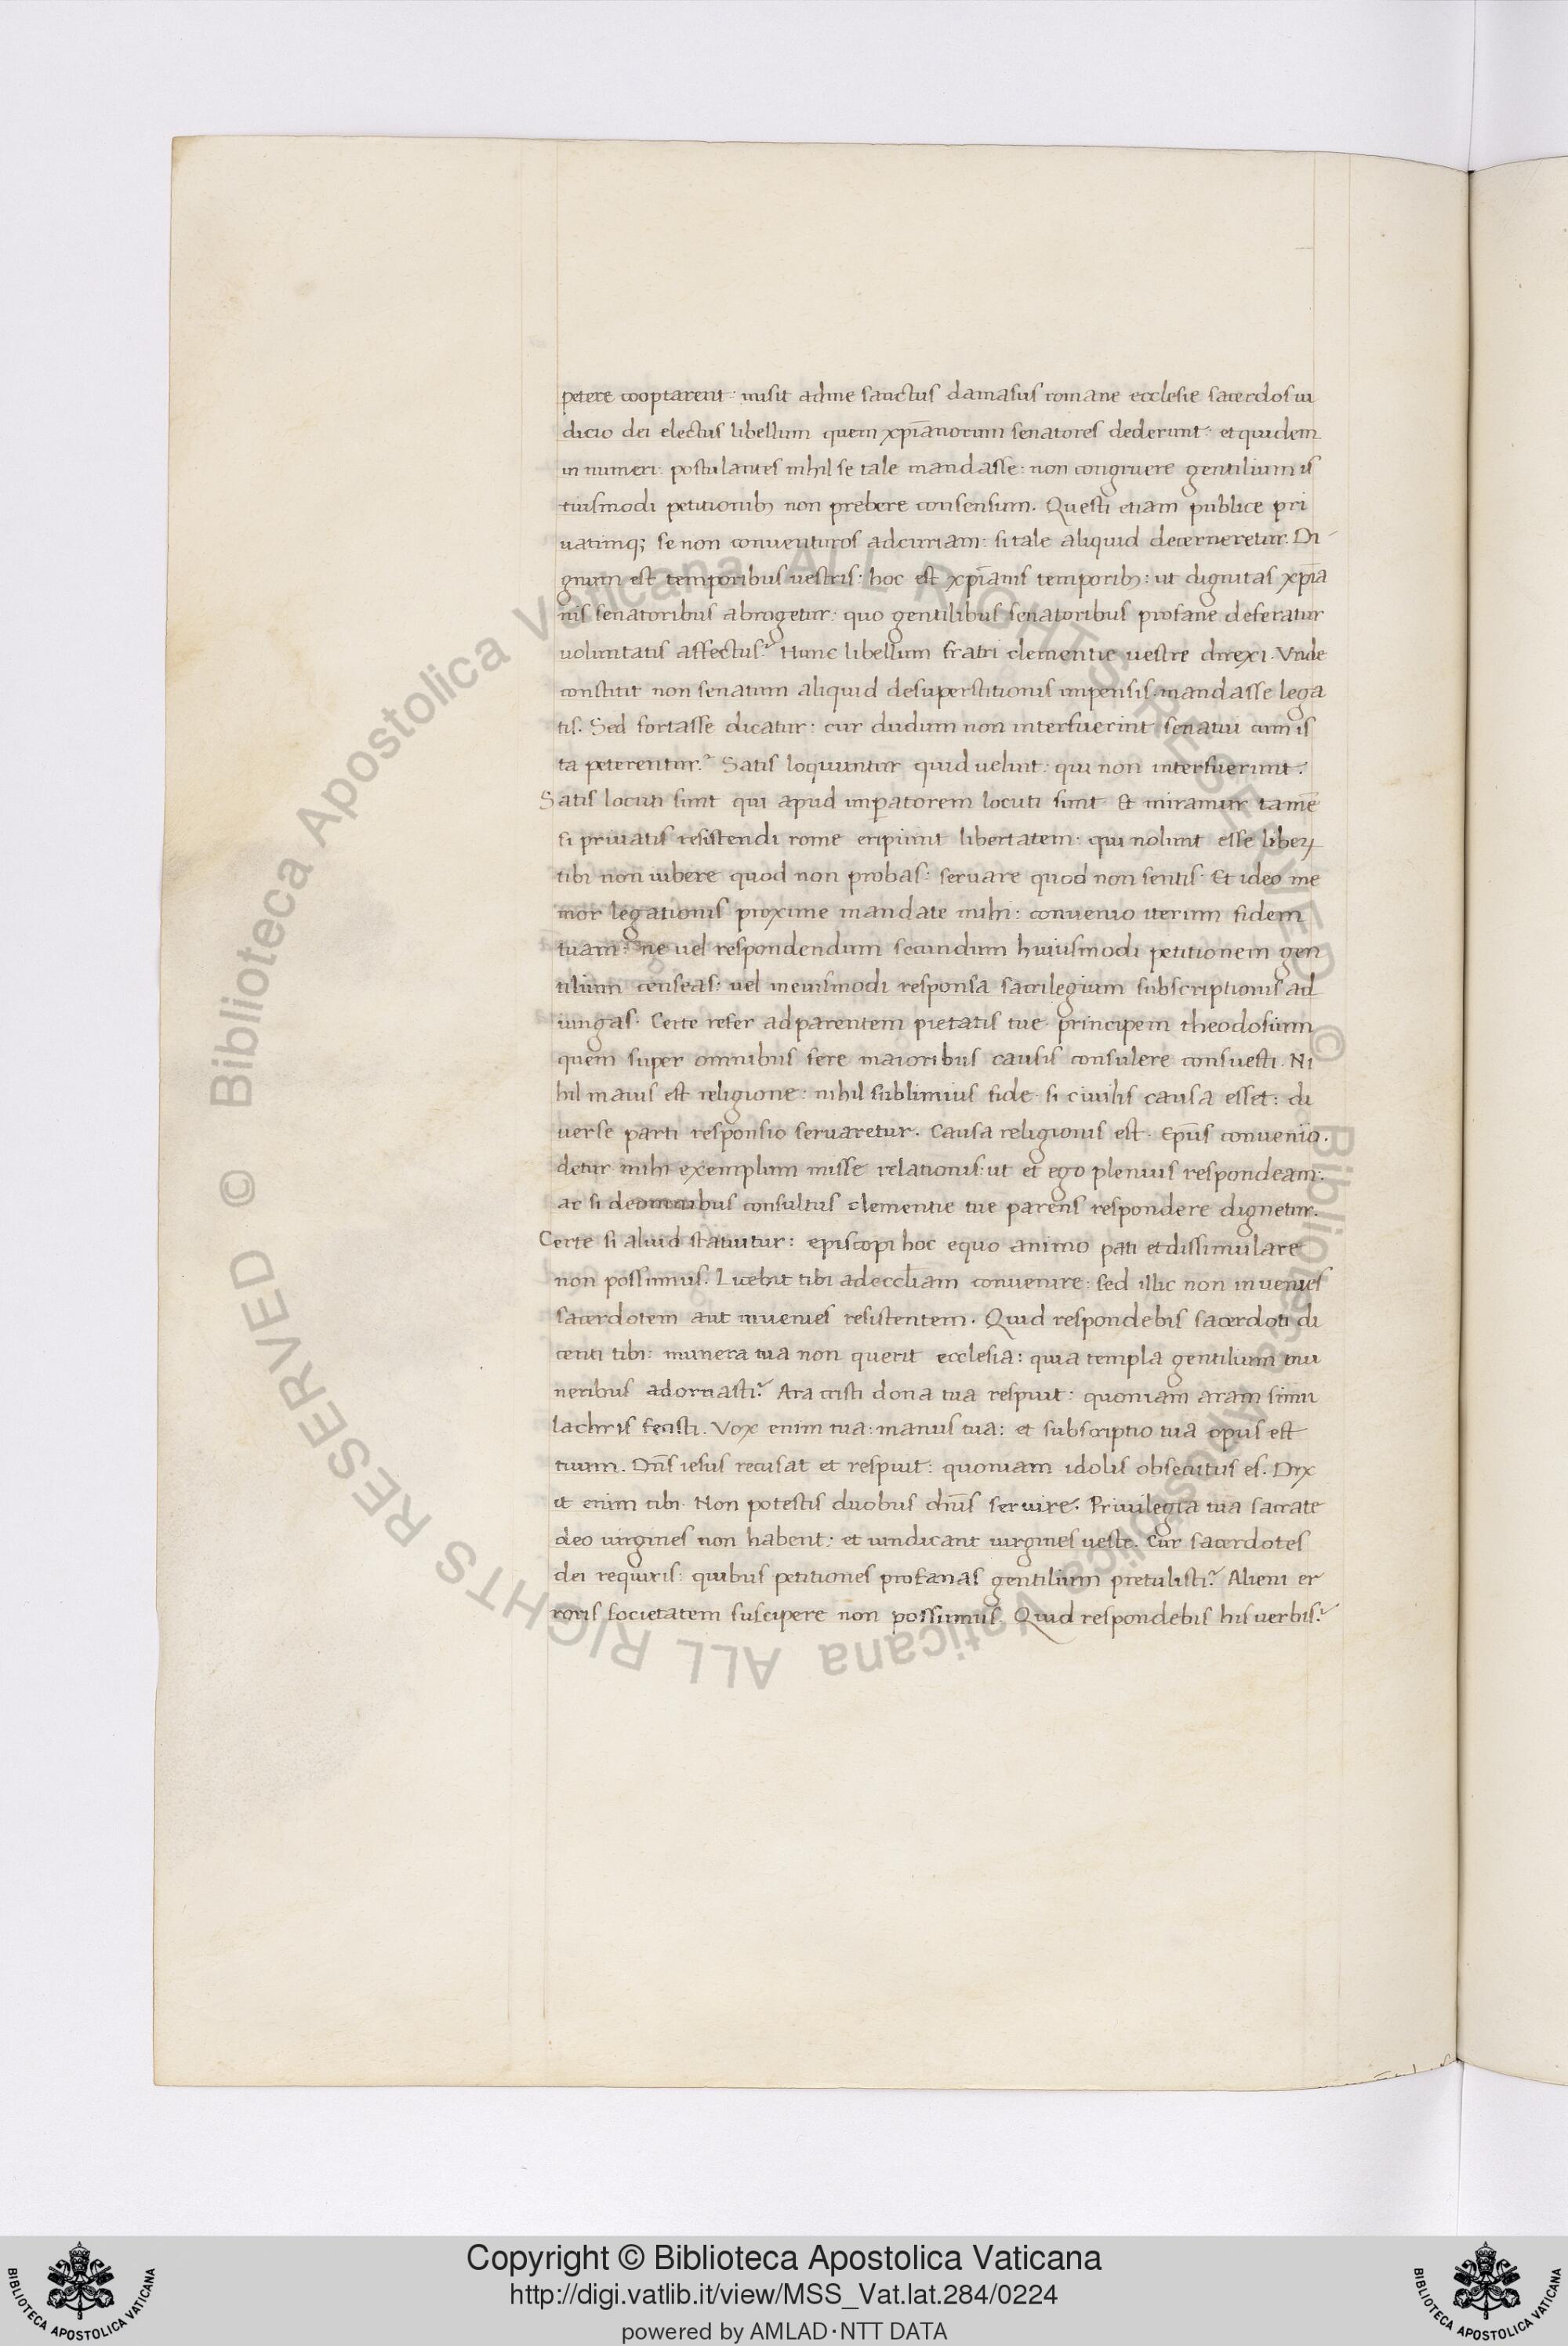 petere cooptarent: misit adme sanctus damasus romane ecclesie sacerdos iu
dicio dei electus libellum quem xp̅ianorum senatores dederunt: et quidem
in numeri: postulantes nihil se tale mandasse: non congruere gentilium is
tiusmodi petitionibꝫ non prebere consensum. Questi etiam publice pri
uatimqꝫ se non conuenturos adcuriam: si tale aliquid decerneretur. Di
gnum est temporibus uestris: hoc est xp̅ianis temporibꝫ: ut dignitas xp̅ia
nis senatoribus abrogetur: quo gentilibus senatoribus profane deferatur
uoluntatis affectus? Hunc libellum fratri clementie uestre direxi. Vnde
constitit non senatum aliquid desuperstitionis impensis mandasse lega
tis. Sed fortasse dicatur: cur dudum non interfuerint senatui cum is
ta peterentur? Satis loquuntur quid uelint: qui non interfuerunt.
Satis locuti sunt qui apud imꝑatorem locuti sunt. Et miramur tame̅
si priuatis resistendi rome eripiunt libertatem: qui nolunt esse libeꝝ
tibi non iubere quod non probas: seruare quod non sentis. Et ideo me
mor legationis proxime mandate mihi: conuenio iterum fidem
tuam: ne uel respondendum secundum huiusmodi petitionem gen
tilium censeas: uel ineiusmodi responsa sacrilegium subscriptionis ad
iungas. Certe refer adparentem pietatis tue principem theodosium
quem super omnibus fere maioribus causis consulere consuesti. Ni
hil maius est religione: nihil sublimius fide. si ciuilis causa esset: di
uerse parti responsio seruaretur. Causa religionis est. Ep̅us conuenio.
detur mihi exemplum misse relationis: ut et ego plenius respondeam:
ac si deomnibus consultus clementie tue parens respondere dignetur.
Certe si aliud statuitur: episcopi hoc equo animo pati et dissimulare
non possumus. Licebit tibi adeccl̅iam conuenire: sed illic non inuenies
sacerdotem aut inuenies resistentem. Quid respondebis sacerdoti di
centi tibi: munera tua non querit ecclesia: quia templa gentilium mu
neribus adornasti? Ara cristi dona tua respuit: quoniam aram simu
lachris fecisti. Vox enim tua: manus tua: et subscriptio tua opus est
tuum. Dn̅s iesus recusat et respuit: quoniam idolis obsecutus es. Dix
it enim tibi. Non potestis duobus dn̅is seruire. Priuilegia tua sacrate
deo uirgines non habent: et uindicant uirgines ueste. Cur sacerdotes
dei requiris: quibus petitiones profanas gentilium pretulisti? Alieni er
roris societatem suscipere non possumus. Quid respondebis his uerbis?
© Biblioteca Apostolica Vaticana ALL RIGHTS RESERVED © Biblioteca Apostolica Vaticana ALL RIGHTS RESERVED
Copyright © Biblioteca Apostolica Vaticana
http://digi.vatlib.it/view/MSS_Vat.lat.284/0224
powered by AMLAD·NTT DATA
BIBLIOTECA APOSTOLICA VATICANA
BIBLIOTECA APOSTOLICA VATICANA